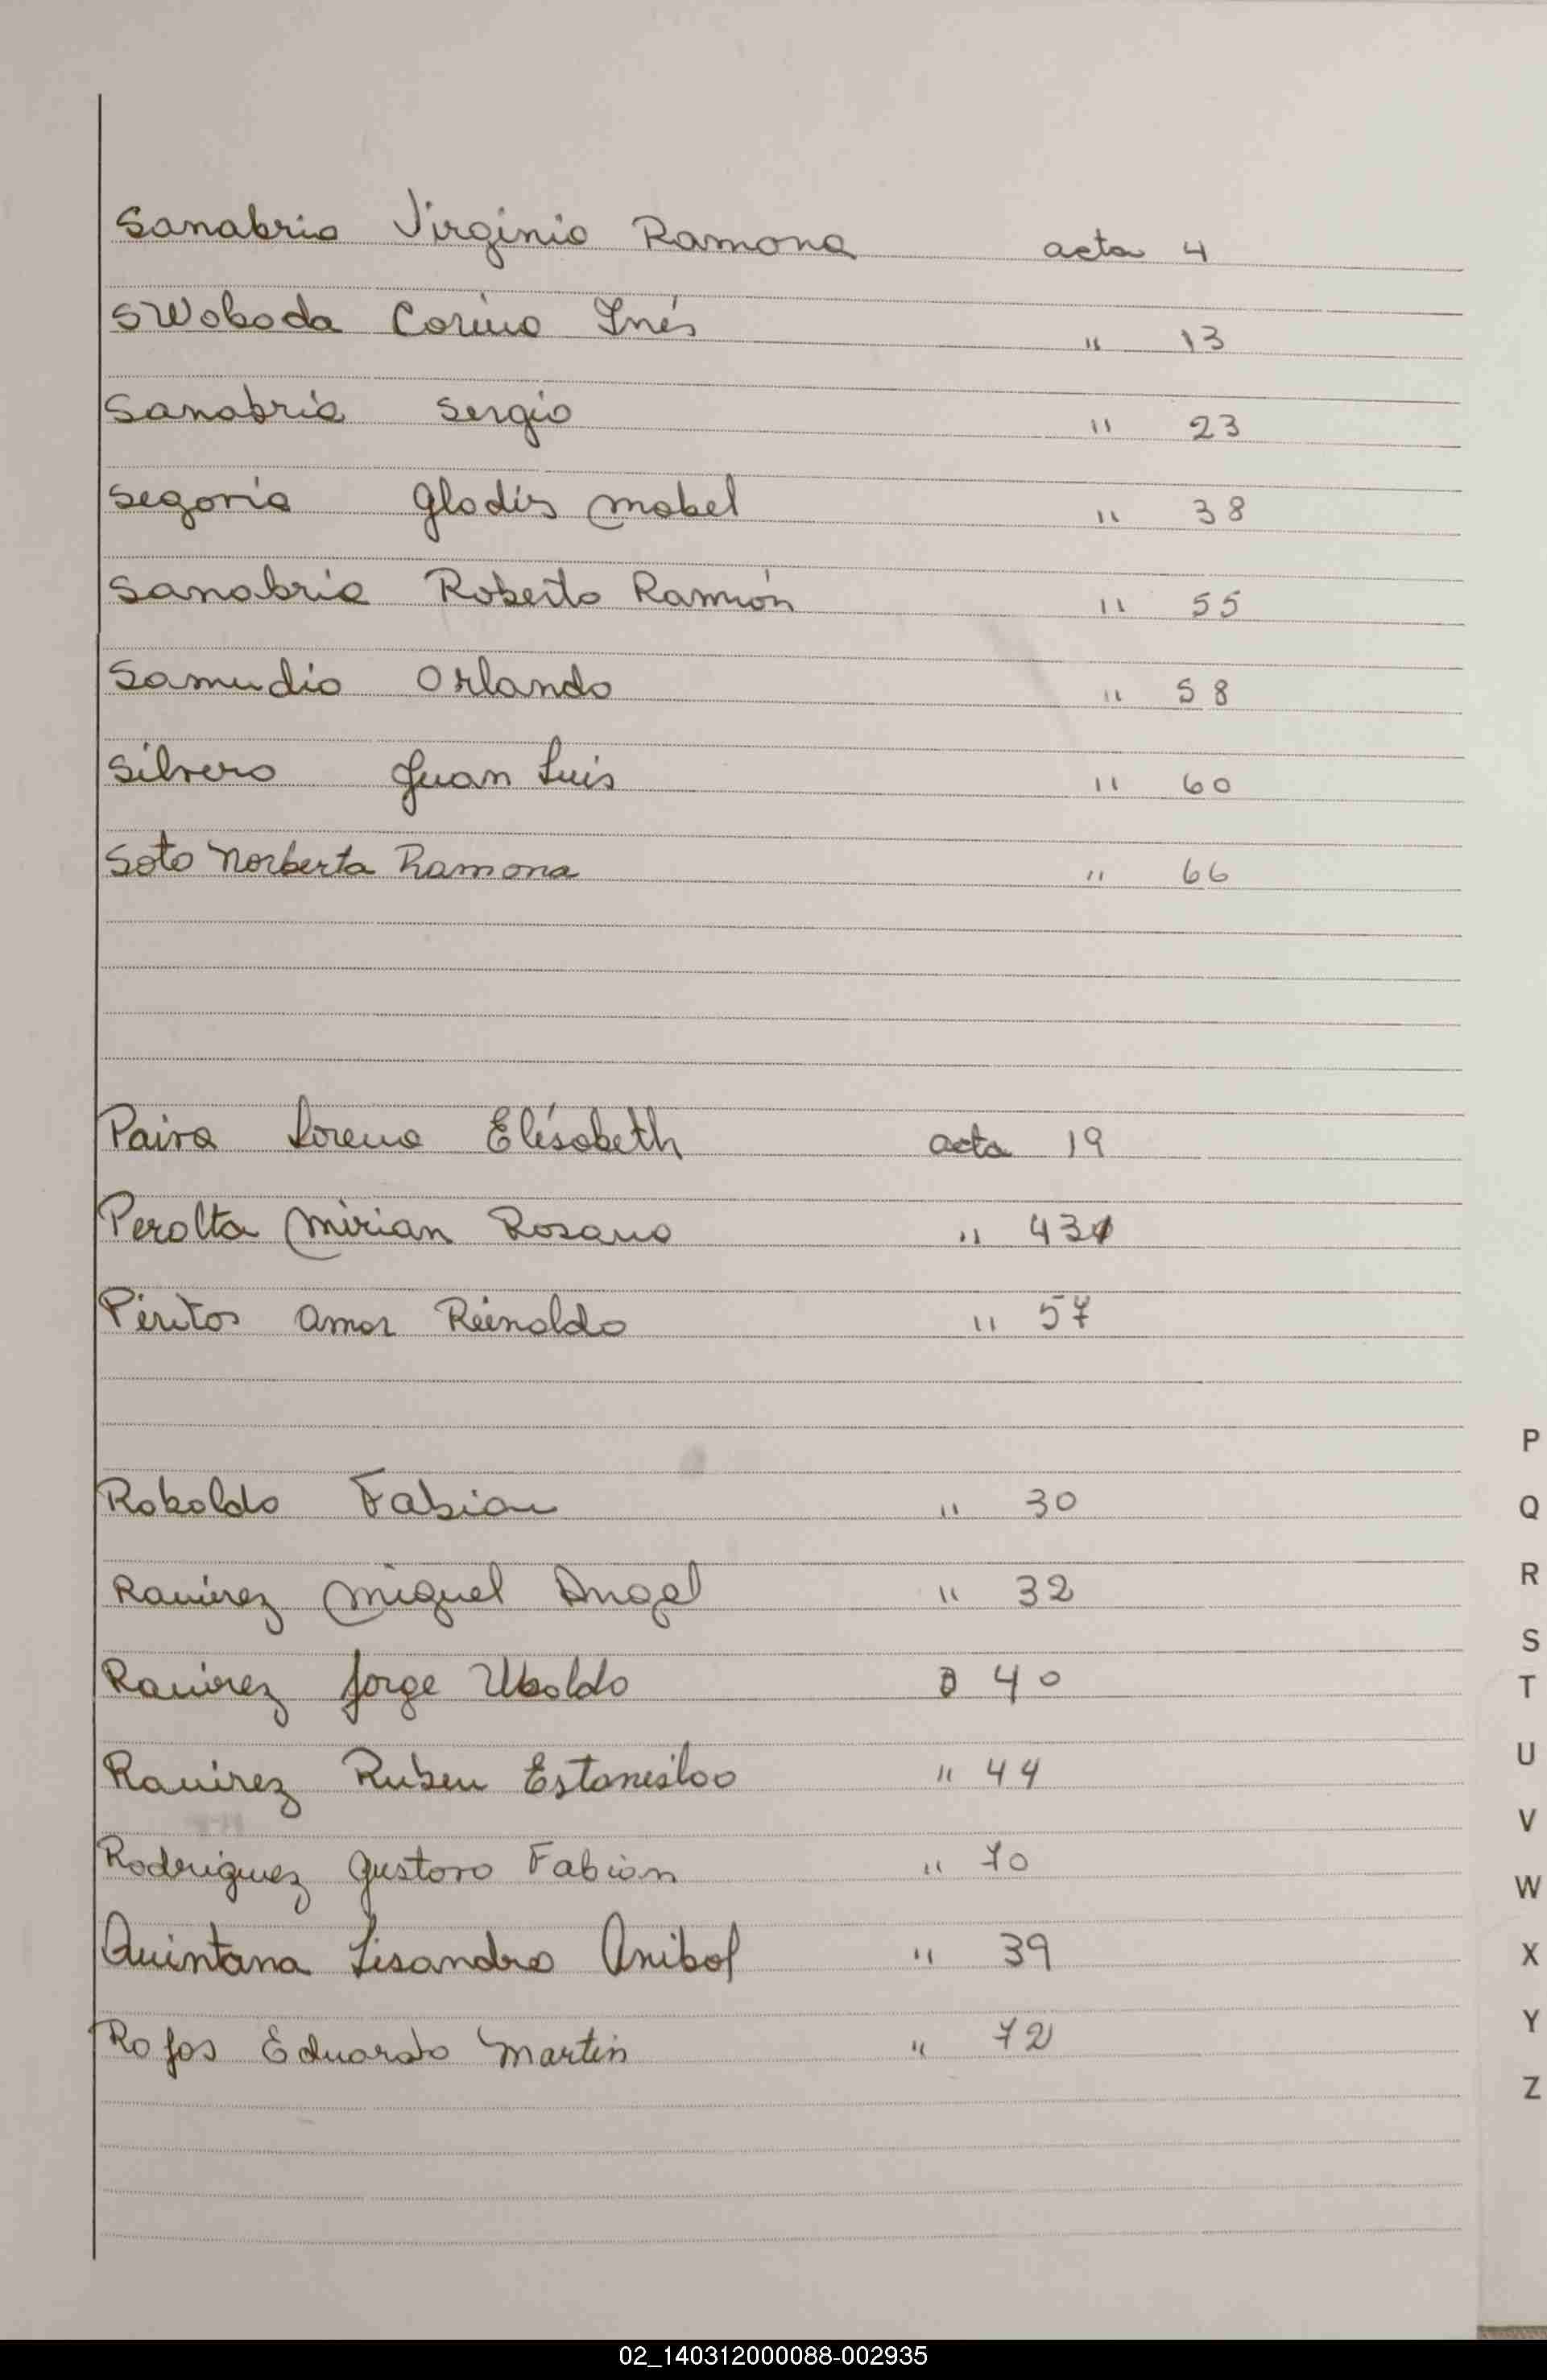 Sanabria Virginia Ramona acta 4
Swoboda Corina Inés " 13
Sanabria Sergio " 23
Segovia Gladis Mabel " 38
Sanabria Roberto Ramón " 55
Samudio Orlando " 58
Silvero Juan Luis " 60
Soto Norberta Ramona " 66
Paiva Lorena Elisabeth acta 19
Peralta Mirian Rosana " 43
Amor Reinaldo " 57
Robaldo Fabian " 30
Ramirez Miguel Angel " 32
Ramirez Jorge Ubaldo 40
Ramirez Ruben Estanislao " 44
Rodriguez Gustavo Fabian " 70
Quintana Lisandro Anibal " 39
Rojas Eduardo Martin " 72
P
Q
R
S
T
U
V
W
X
Y
Z
02_140312000088-002935